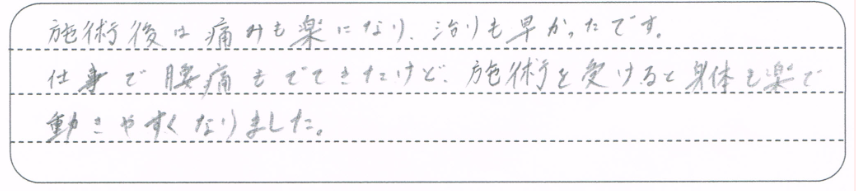 施術後は痛みも楽になり、治りも早かったです。
仕事で腰痛もでてきたけど、施術を受けると身体も楽で
動きやすくなりました。